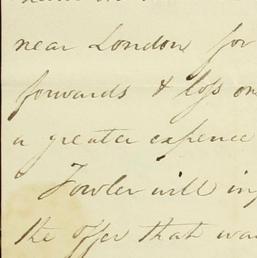 near London for
forwards & loss on
a greater expence
Fowler will in
the offer that wa